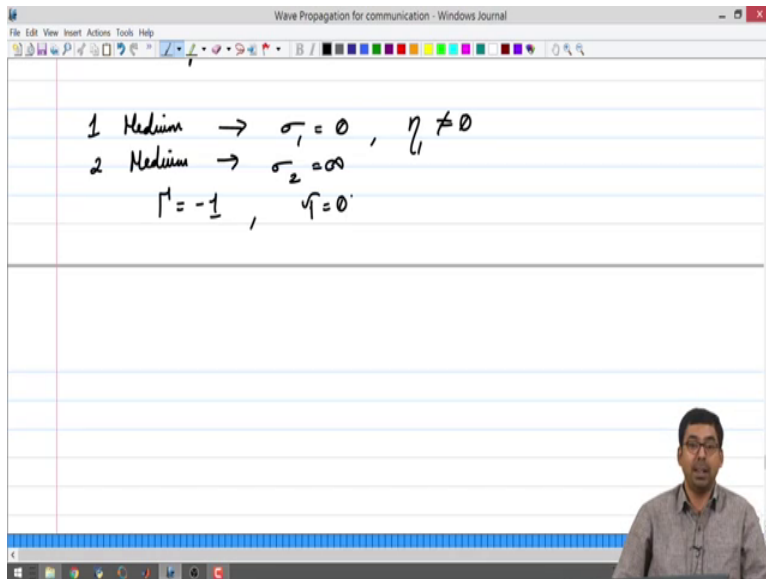 Wave Propagation for communication - Windows Journal
File Edit View Insert Actions Tools Help
1 Medium → σ₁ = 0 , η₁ ≠ 0
2 Medium → σ₂ = ∞
Γ = -1 , T = 0